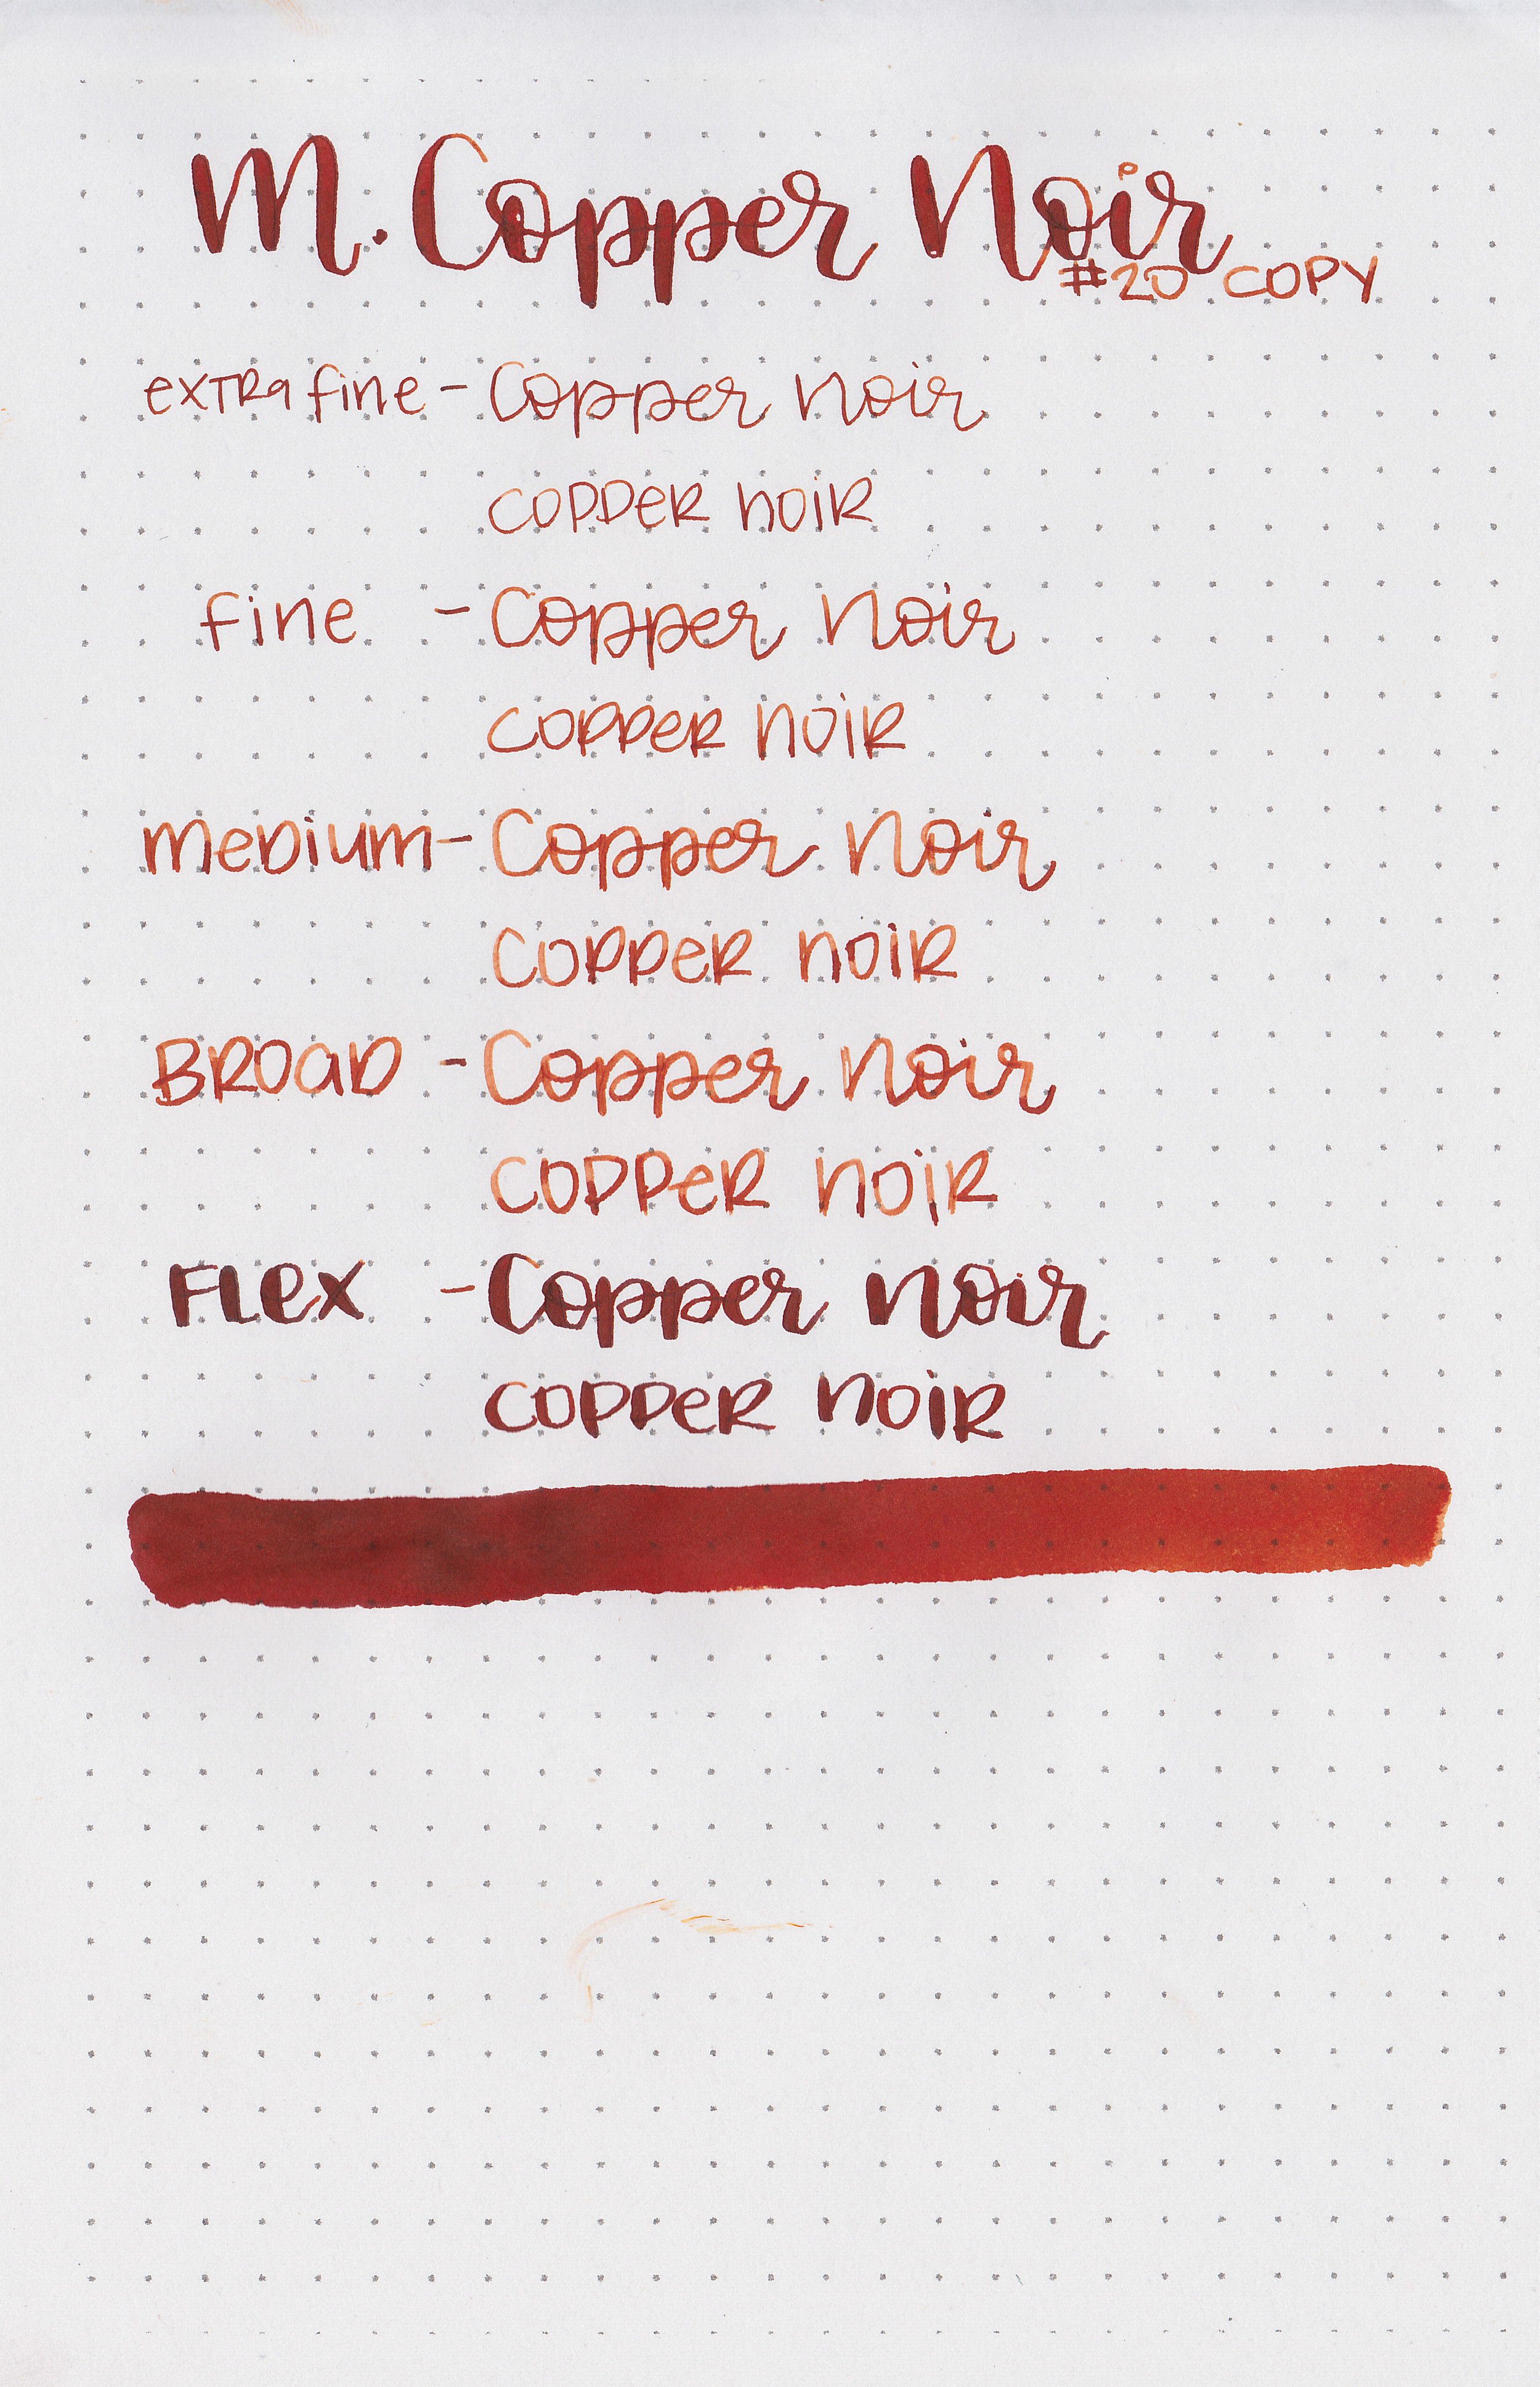 M. Copper Noir
#20 COPY
extra fine - Copper noir
copper noir
fine - Copper noir
copper noir
medium - Copper noir
copper noir
Broad - Copper noir
copper noir
Flex - Copper noir
copper noir